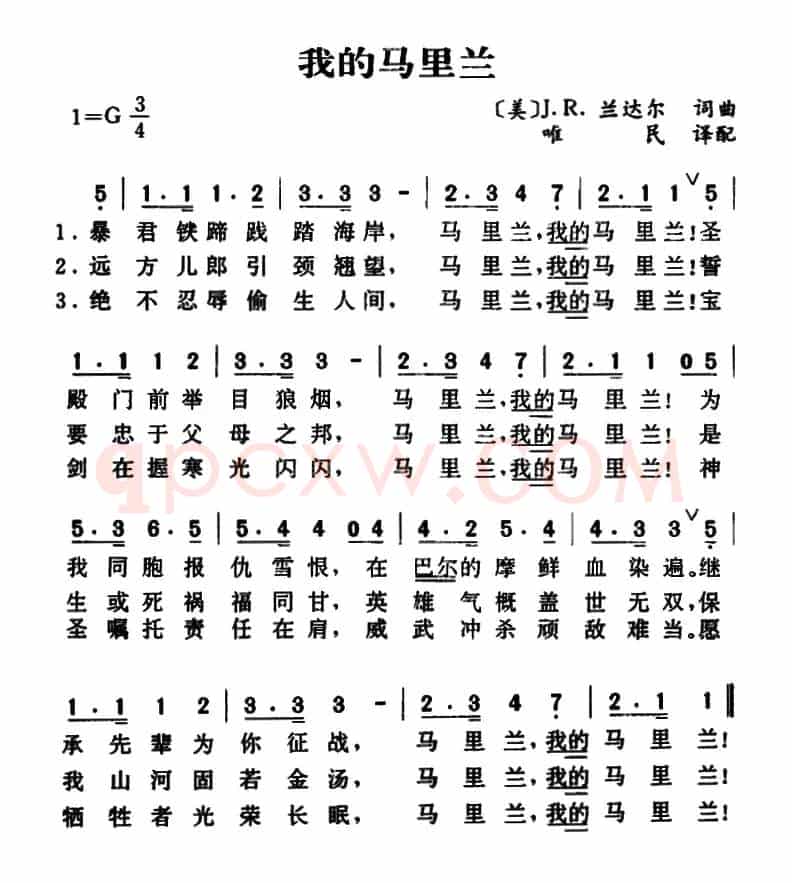 我的马里兰
1=G 3/4
〔美〕J.R. 兰达尔 词曲
唯 民 译配
5 | 1·1 1·2 | 3·3 3 - | 2·3 4 7 | 2·1 1 ∨ 5 |
1.暴君铁蹄践踏海岸，马里兰，我的马里兰！圣
2.远方儿郎引颈翘望，马里兰，我的马里兰！誓
3.绝不忍辱偷生人间，马里兰，我的马里兰！宝
1·1 1 2 | 3·3 3 - | 2·3 4 7 | 2·1 1 05 |
殿门前举目狼烟，马里兰，我的马里兰！为
要忠于父母之邦，马里兰，我的马里兰！是
剑在握寒光闪闪，马里兰，我的马里兰！神
qpcxw.COM
5·3 6·5 | 5·4 4 04 | 4·2 5·4 | 4·3 3 ∨ 5 |
我同胞报仇雪恨，在巴尔的摩鲜血染遍。继
生或死祸福同甘，英雄气概盖世无双，保
圣嘱托责任在肩，威武冲杀顽敌难当。愿
1·1 1 2 | 3·3 3 - | 2·3 4 7 | 2·1 1 ‖
承先辈为你征战，马里兰，我的马里兰！
我山河固若金汤，马里兰，我的马里兰！
牺牲者光荣长眠，马里兰，我的马里兰！